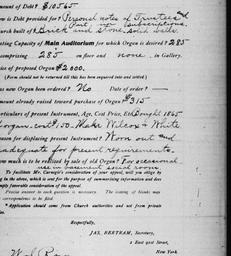 mount of Debt? $10565
ow is Debt provided for? Personal notes of Trustees and
Part, in Subscriptions.
hurch built of? Brick and stone, solid walls.
ating Capacity of Main Auditorium for which Organ is desired? 285
comprising 285 on floor and none in Gallery.
rice of proposed Organ $2000.
(Form should not be returned till this has been enquired into and settled.)
as new Organ been ordered? No Date of order? —
mount already raised toward purchase of Organ? $315
articulars of present Instrument, Age, Cost Price, Etc. Bought 1865
organ. cost $150. Make Wilcox & White
eason for displacing present Instrument? Worn out and
nadequate for present requirements.
ow much is to be realized by sale of old Organ? For occasional
use in basement social room.
To facilitate Mr. Carnegie's consideration of your appeal, will you oblige by
ng in the above, which is sent for the purpose of summarizing information and does
mply favorable consideration of the appeal.
Precise answer to each question is necessary. The issuing of blanks may
correspondence to be filed.
* Application should come from Church authorities and not from private
ls.
Respectfully,
JAS. BERTRAM, Secretary,
2 East 91st Street,
New York